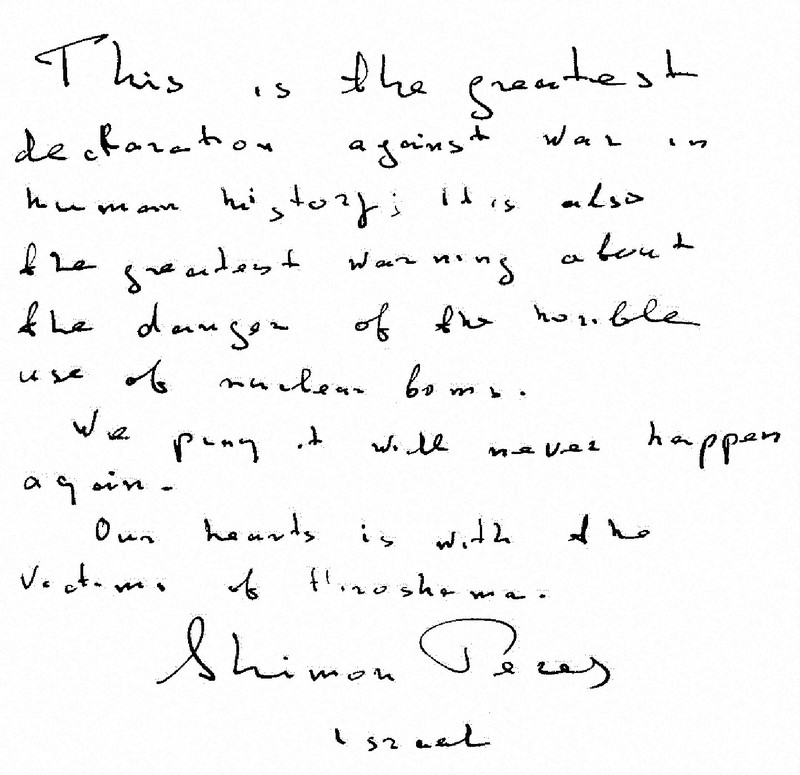 This is the greatest
declaration against war in
human history; it is also
the greatest warning about
the danger of the horrible
use of nuclear boms.
We pray it will never happen
again.
Our hearts is with the
victims of Hiroshema.
Shimon Peres
Israel